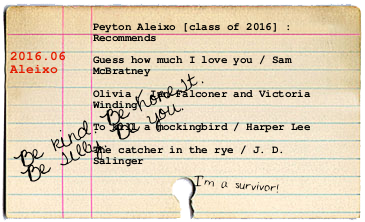 Peyton Aleixo [class of 2016] :
Recommends
2016.06
Aleixo
Guess how much I love you / Sam
McBratney
Olivia / Falconer and Victoria
Winding
To a mockingbird / Harper Lee
The catcher in the rye / J. D.
Salinger
Be kind. Be honest.
Be silly. Be you.
I'm a survivor!